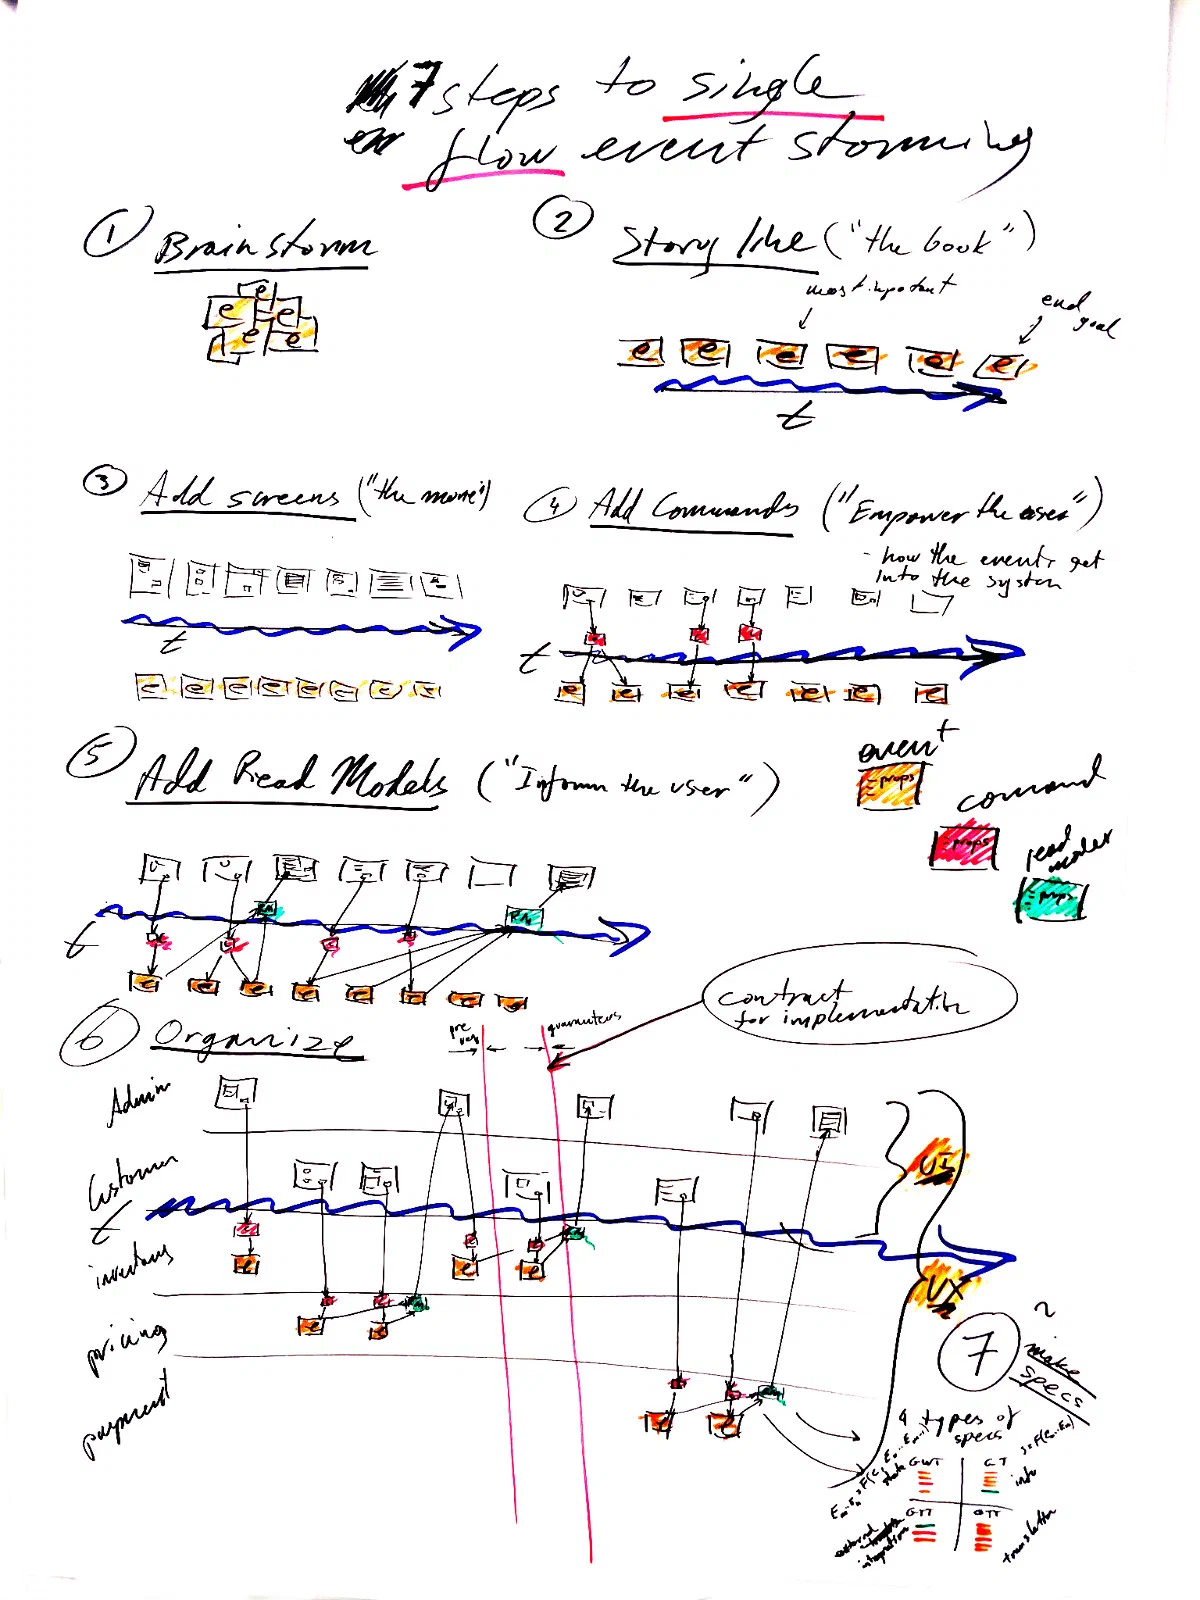 7 steps to single
flow event storming
1 Brainstorm
e
e
e
e
e
2 Story like ("the book")
most important
end
goal
e e e e e e
t
3 Add screens ("the movie")
t
e e e e e e e e
4 Add Commands ("Empower the user")
- how the events get
into the system
t
e e e e e e e
5 Add Read Models ("Inform the user")
event
props
command
props
read
model
props
RM
RM
t
e e e e e e e e
6 Organize
pre
guarantees
contract
for implementation
Admin
Customer
t
inventory
pricing
payment
e
e
e
e
e
e
e
UI
UX
7
make
specs
4 types of
specs
state
GWT
GT
info
external
integration
GTT
GTT
translator